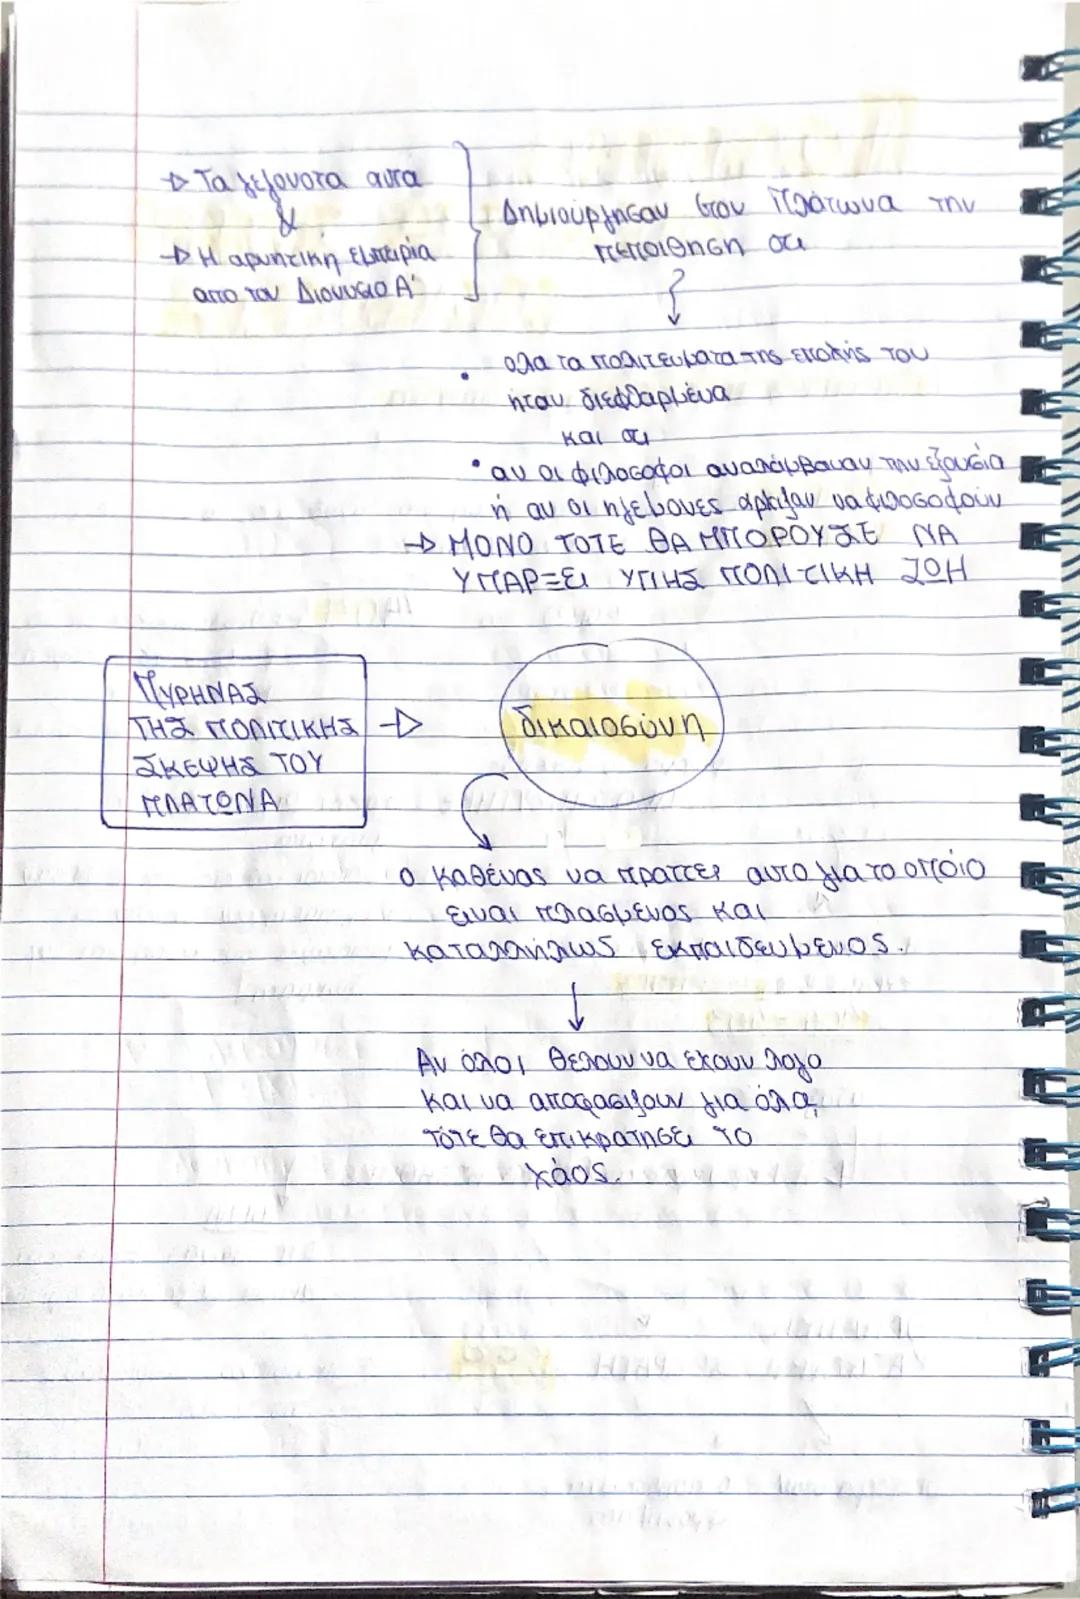 → Τα γεγονοτα αυτα
&
→ Η αρνητικη εμπειρία
απο τον Διονυσιο Α'
Δημιούργησαν στον Πλάτωνα την
πεποιθηση οτι
• ολα τα πολιτευματα της εποχής του
ήταν διεφθαρμένα
και οτι
• αν οι φιλοσοφοι αναλάμβαναν την εξουσία
ή αν οι ηγεμονες αρχιζαν να φιλοσοφούν
→ ΜΟΝΟ ΤΟΤΕ ΘΑ ΜΠΟΡΟΥΣΕ ΝΑ
ΥΠΑΡΞΕΙ ΥΓΙΗΣ ΠΟΛΙΤΙΚΗ ΖΩΗ
ΠΥΡΗΝΑΣ
ΤΗΣ ΠΟΛΙΤΙΚΗΣ →
ΣΚΕΨΗΣ ΤΟΥ
ΠΛΑΤΩΝΑ
δικαιοσύνη
ο καθένας να πραττει αυτο για το οποίο
ειναι πλασμενος και
καταλλήλως εκπαιδευμενος.
Αν όλοι θελουν να εχουν λογο
και να αποφασιζουν για όλα,
τότε θα επικρατησει το
χάος.